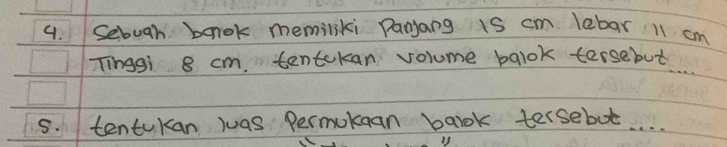 4. Sebuah balok memiliki Panjang 15 cm lebar 11 cm
Tinggi 8 cm. tentukan volume balok tersebut....
5. tentukan luas Permukaan balok tersebut....